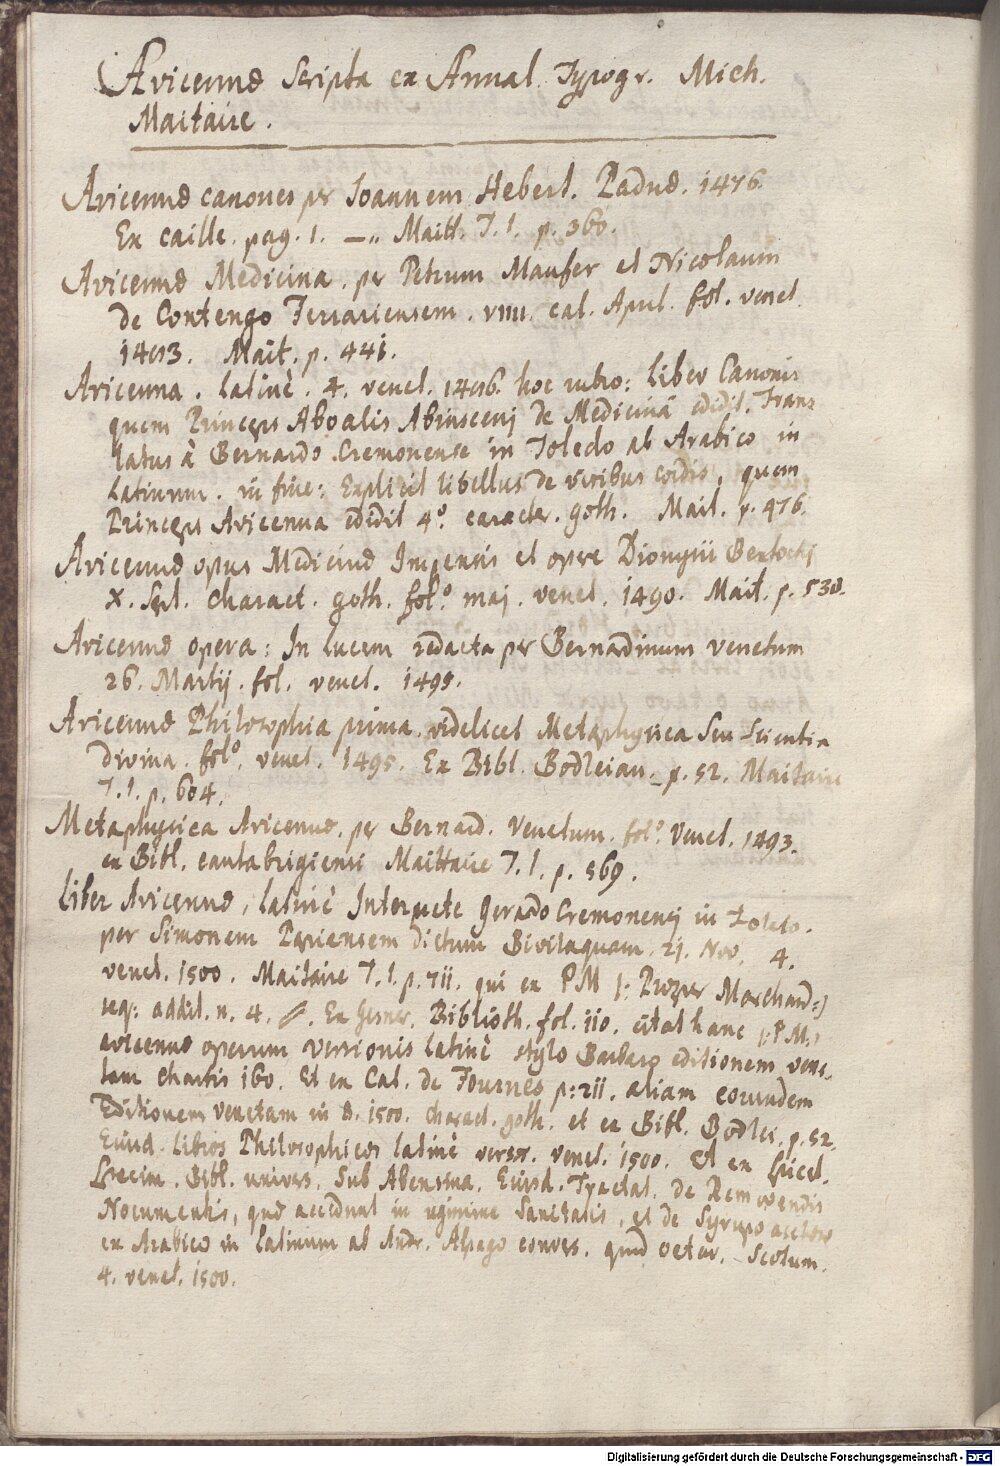 Avicennæ Scripta ex Annal. Typogr. Mich.
Maitaire.
Avicennæ canones per Joannem Heberl. Paduæ. 1476.
Ex caille. pag. 1. —„ Maitt. T. 1. p. 360.
Avicennæ Medicina. per Petrum Maufer et Nicolaum
de Contengo Ferrariensem. VIIII. cal. April. fol. venet.
1483. Mait. p. 441.
Avicenna. latinè. 4. venet. 1486. hoc intro: Liber Canonis
quem Princeps Aboalis Abinsceni de Medicinâ edidit. Trans
latus à Bernardo Cremonense in Toledo ab Arabico in
Latinum. in fine: Explicit libellus de viribus cordis, quem
Princeps Avicenna edidit 4º. caracter. goth. Mait. p. 476.
Avicennæ opus Medicinæ Impensis et opere Dionysii Bertochj
X. Sept. charact. goth. folº. maj. venet. 1490. Mait. p. 530.
Avicennæ opera: In lucem redacta per Bernardinum venetum
26. Martij. fol. venet. 1495.
Avicennæ Philosophia prima. videlicet Metaphysica Seu Scientia
Divina. folº. venet. 1495. Ex Bibl. Bodleian. p. 52. Maitaire
T. 1. p. 604.
Metaphysica Avicennæ. per Bernard. Venetum. folº. Venet. 1493.
ex Bibl. cantabrigiensi Maittaire T. 1. p. 569.
Liber Avicennæ, latinè Interprete Gerardo Cremonensj in Toleto.
per Simonem Papiensem dictum Bivilaquam. 21. Nov. 4.
venet. 1500. Maitaire T. 1. p. 711. qui ex PM |: Prosper Marchand :|
seq: addit. n. 4. Ex Gesner. Biblioth. fol. 110. citat hanc |: PM :|
avicennæ operum versionis latinè stylo Barbaro editionem vene-
tam chartis 160. Et ex Cat. de Tournes p: 211. aliam eorundem
Editionem venetam in 8. 1500. charact. goth. et ex Bibl. Bodlei. p. 52.
Eiusd. libros Philosophicos latinè versos. venet. 1500. Et ex
Specim. Bibl. univers. Sub Abensina. Eiusd. Tractat. de Removendis
Nocumentis, quæ accidunt in regimine Sanitatis, et de Syrupo acetoso
ex Arabico in latinum ab Andr. Alpago convers. Scotum.
4. venet. 1500.
Digitalisierung gefördert durch die Deutsche Forschungsgemeinschaft - DFG